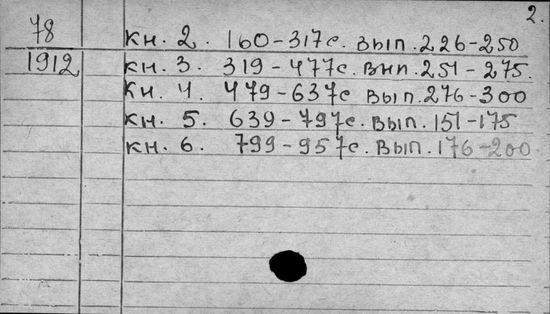 2.
78 кн. 2. 160-317с. вып. 226-250
1912 кн. 3. 319-477с. вып. 251-275.
кн. 4. 479-637с вып. 276-300
кн. 5. 639-797с. вып. 151-175
кн. 6. 799-957с. вып. 176-200